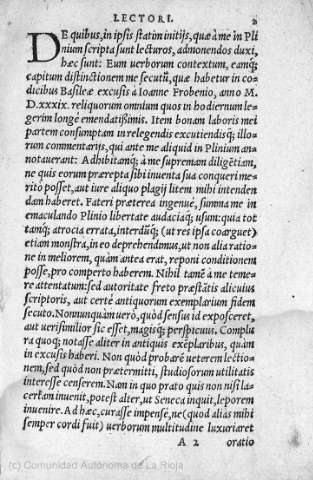 LECTORI. 2
DE quibus, in ipsis statim initijs, quæ à me in Pli
nium scripta sunt lecturos, admonendos duxi,
hæc sunt: Eum uerborum contextum, eamq́;
capitum distinctionem me secutũ, quæ habetur in co-
dicibus Basileæ excusis à Ioanne Frobenio, anno M.
D.XXXIX. reliquorum omnium quos in hodiernum le-
gerim longè emendatißimis. Item bonam laboris mei
partem consumptam in relegendis excutiendisq́; illo-
rum commentarijs, qui ante me aliquid in Plinium an-
notauerant: Adhibitamq́; à me supremam diligẽtiam,
ne quis eorum præreptâ sibi inuenta sua conqueri me-
rito posset, aut iure aliquo plagij litem mihi intenden
dam haberet. Fateri præterea ingenuè, summa me in
emaculando Plinio libertate audaciaq́; usum: quia tot
tamq́; atrocia errata, interdũq́; (ut res ipsa coarguet)
etiam monstra, in eo deprehendimus, ut non alia ratio-
ne in meliorem, quàm antea erat, reponi conditionem
posse, pro comperto haberem. Nihil tamẽ à me teme-
re attentatum: sed autoritate freto præstãtis alicuius
scriptoris, aut certè antiquorum exemplarium fidem
secuto. Nonnunquàm uerò, quòd sensus id exposceret,
aut uerisimilior sic esset, magisq́; perspicuus. Complu
ra quoq́; notasse aliter in antiquis exẽplaribus, quàm
in excusis haberi. Non quòd probarẽ ueterem lectio-
nem, sed quòd non prætermitti, studiosorum utilitatis
interesse censerem. Nam in quo prato quis non nisi la-
certam inuenit, potest alter, ut Seneca inquit, leporem
inuenire. Ad hæc, curasse impensè, ne (quod alias mihi
semper cordi fuit) uerborum multitudine luxuriaret
A 2 oratio
(c) Comunidad Autónoma de La Rioja